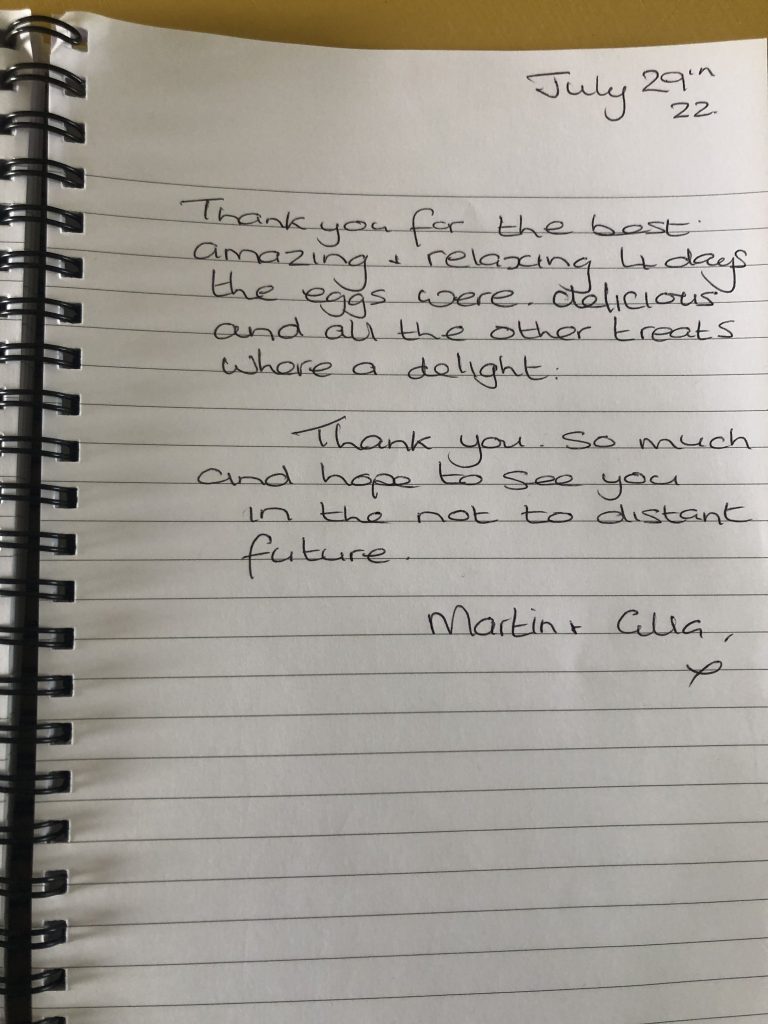 July 29th
22.
Thank you for the best
amazing + relaxing 4 days
the eggs were. delicious
and all the other treats
where a delight.
Thank you. So much
and hope to see you
in the not to distant
future.
Martin +
x